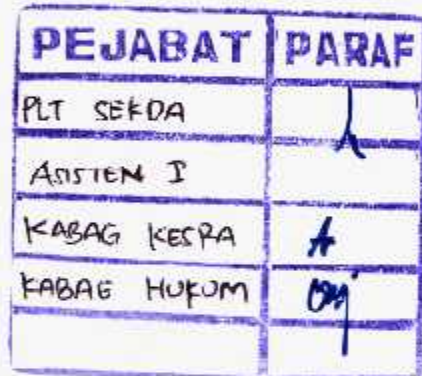 PEJABAT PARAF
PLT SEKDA
ASISTEN I
KABAG KESRA
KABAG HUKUM